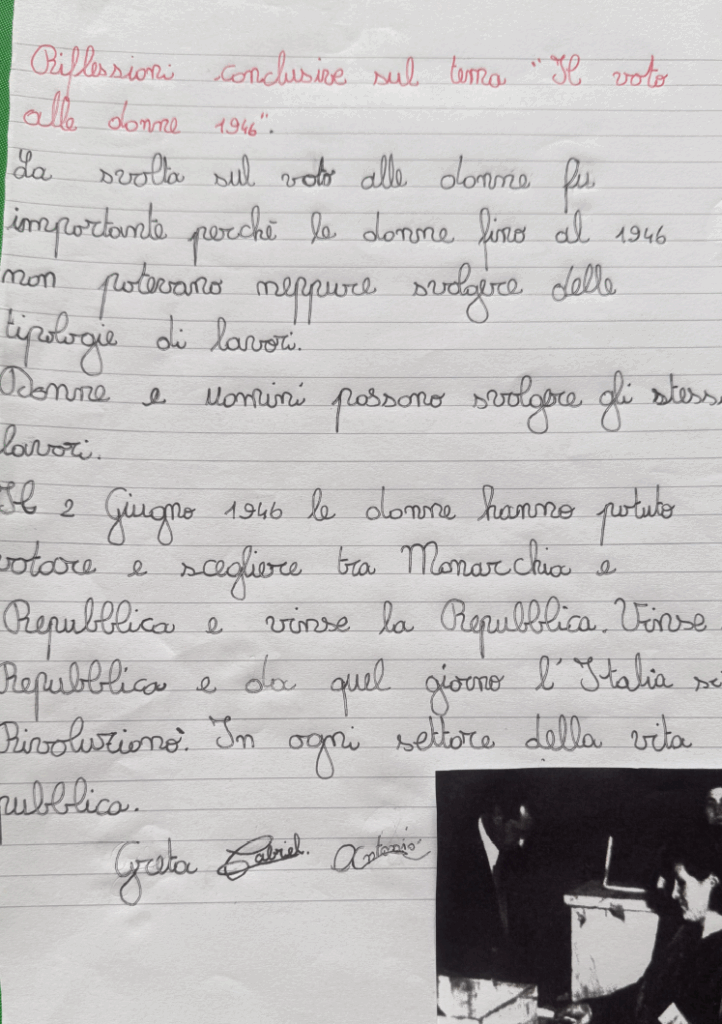 Riflessioni conclusive sul tema "Il voto
alle donne 1946".
La svolta sul voto alle donne fu
importante perchè le donne fino al 1946
non potevano neppure svolgere delle
tipologie di lavori.
Donne e uomini possono svolgere gli stess
lavori.
Il 2 Giugno 1946 le donne hanno potuto
votare e scegliere tra Monarchia e
Repubblica e vinse la Repubblica. Vinse
Repubblica e da quel giorno l'Italia si
Rivoluzionò. In ogni settore della vita
pubblica.
Greta Gabriel. Antonio